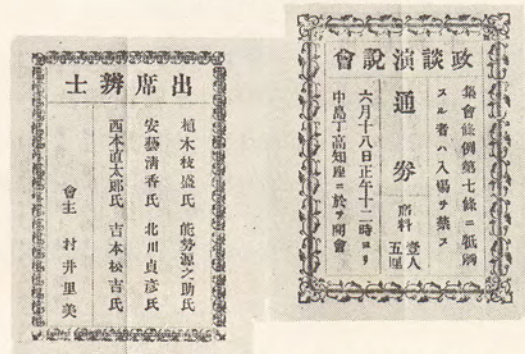 政談演説會
集會條例第七條ニ牴触
スル者ハ入場ヲ禁ス
通券
席料
壹人
五厘
六月十八日正午十二時ヨリ
中島丁高知座ニ於テ開會
出席辨士
植木枝盛氏 能勢源之助氏
安藝清香氏 北川貞彦氏
西本直太郎氏 吉本松吉氏
會主 村井里美